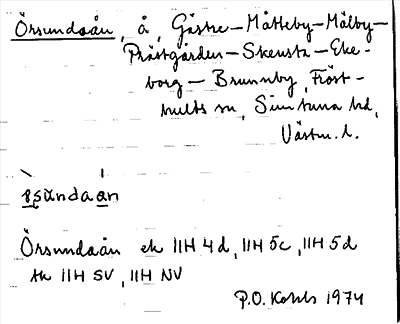 Örsundaån, å, Gästre–Måtteby–Mälby–
Prästgården–Skensta–Eke-
borg–Brunnby, Fröst-
hults sn, Simtuna hd,
Västm. l.
Örsundaån ek 11H 4d, 11H 5c, 11H 5d
tk 11H SV, 11H NV
P.O. 1974